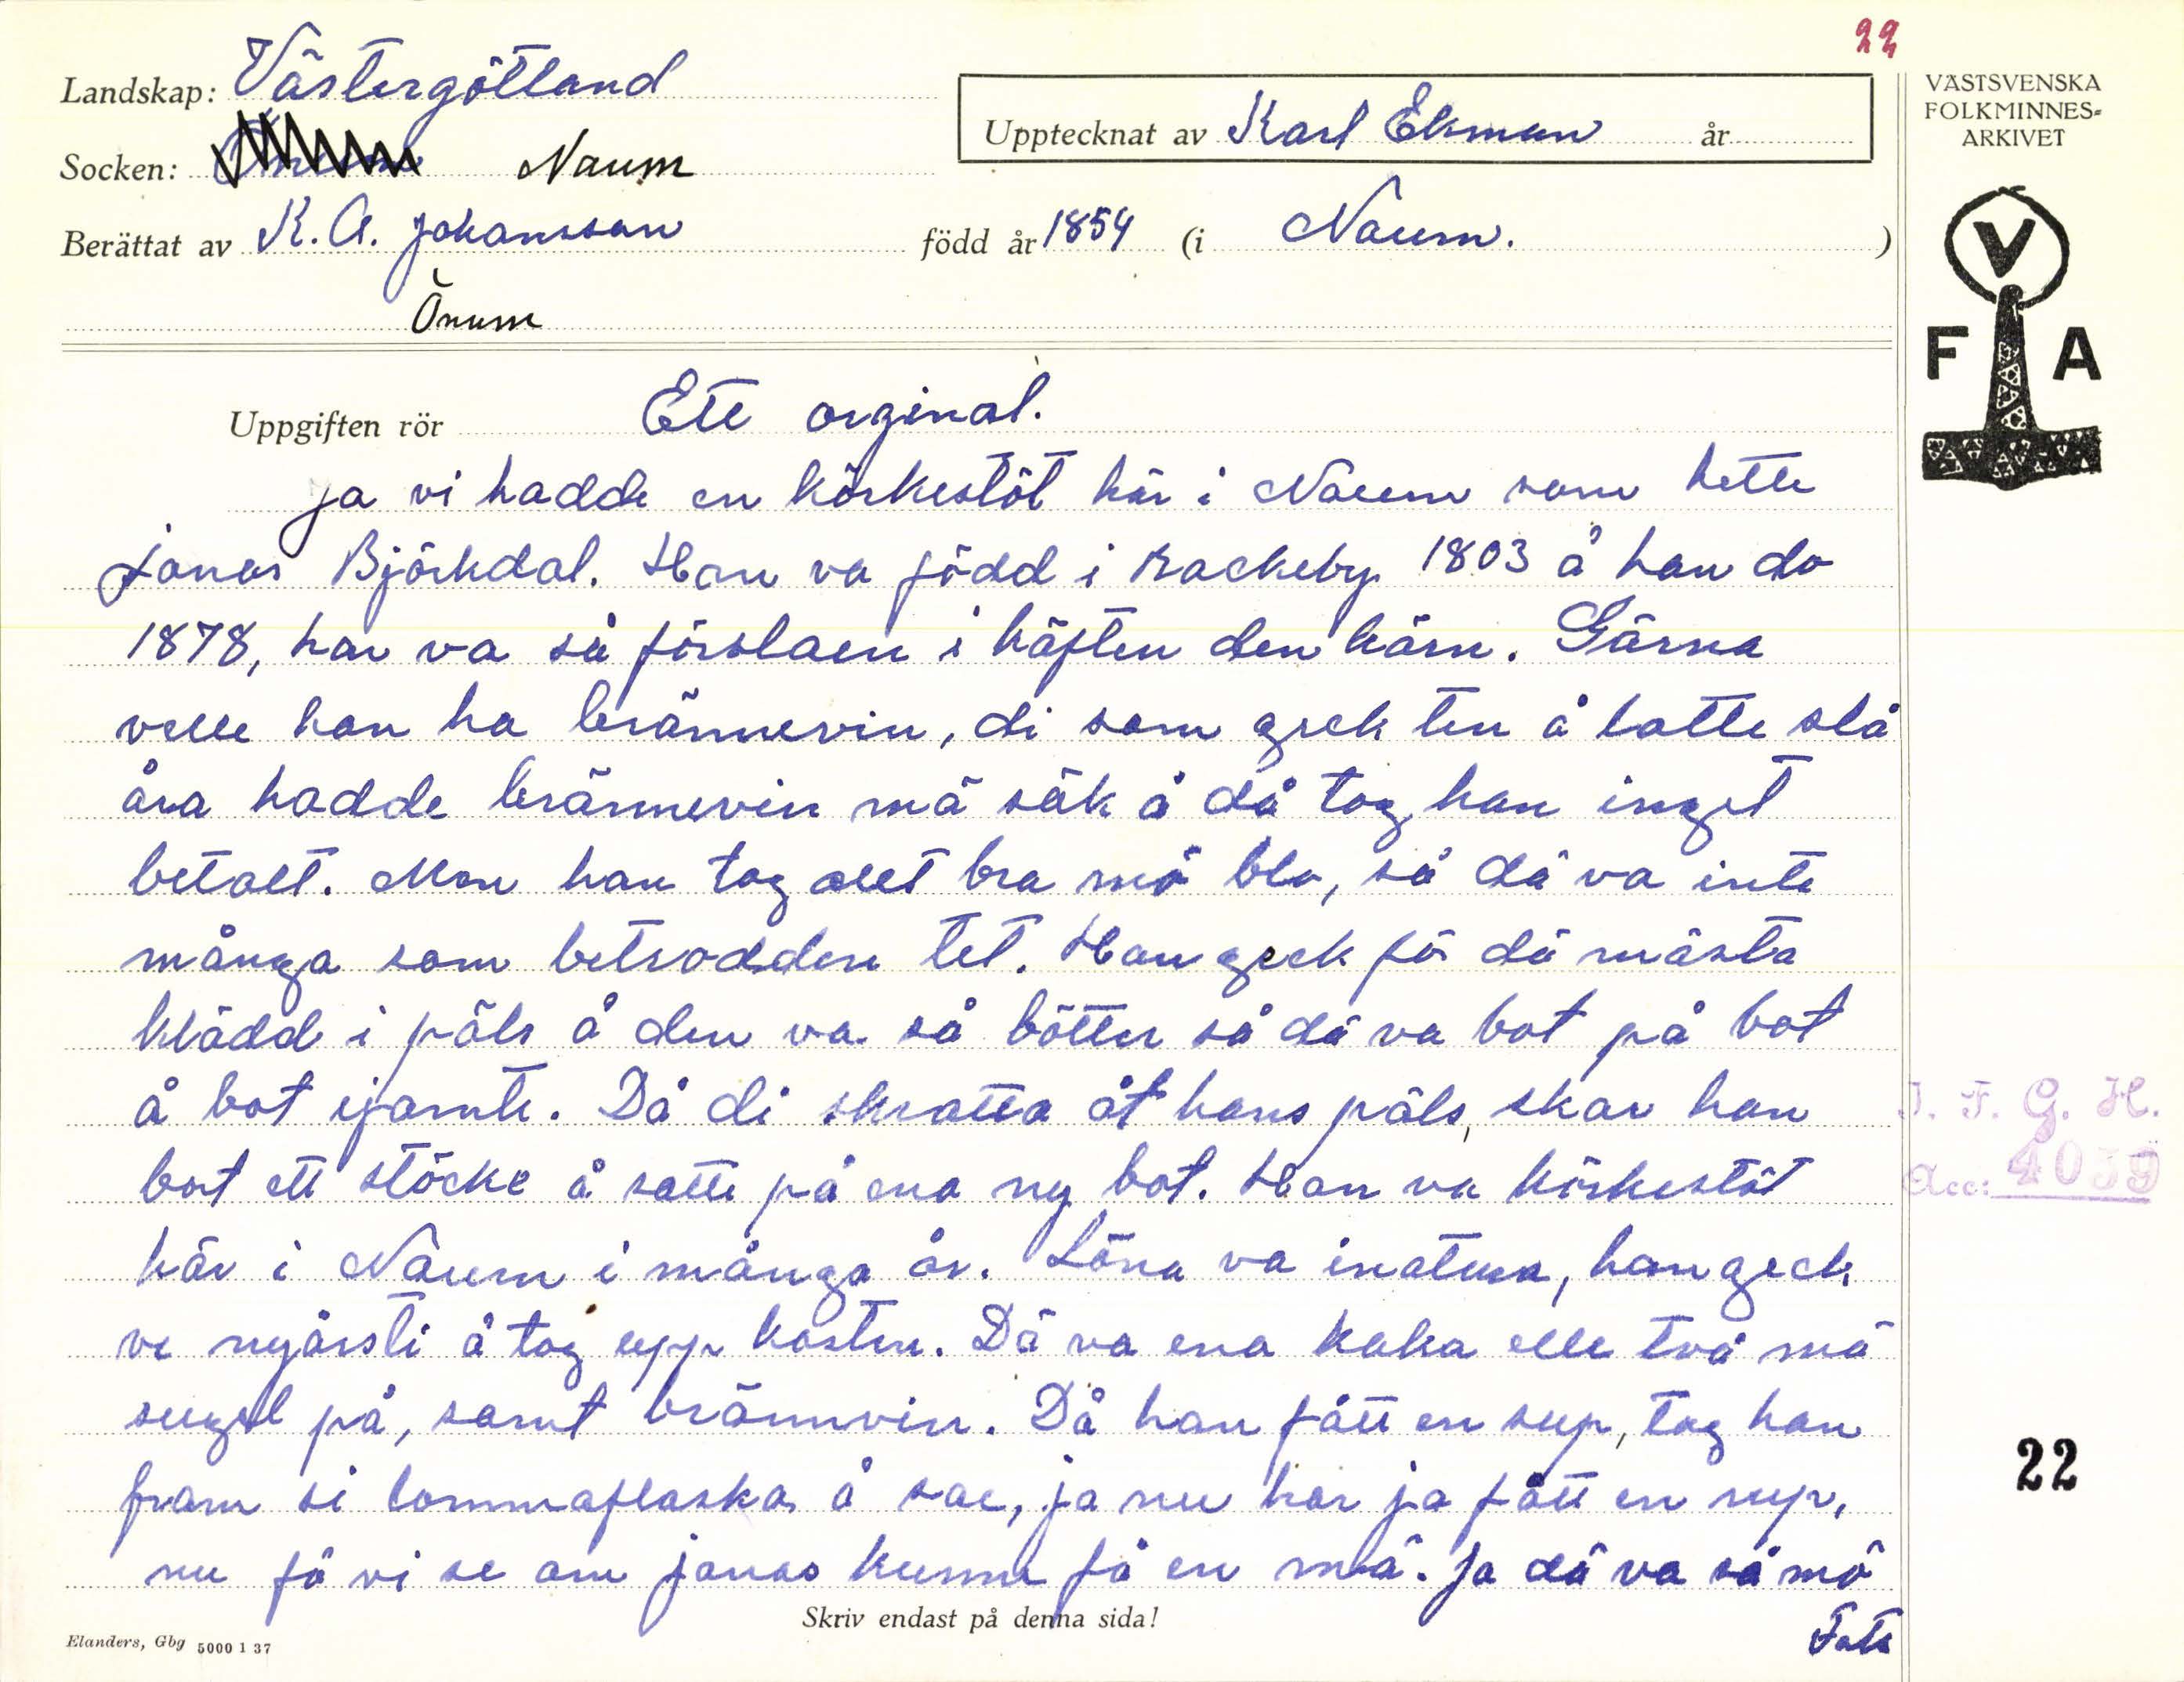 22
Landskap: Västergötland
VÄSTSVENSKA
FOLKMINNES-
ARKIVET
Upptecknat av Karl Ekman år
Socken: Naum
Berättat av K. A. Johansson född år 1854 (i Naum.)
Önum
V
F A
Uppgiften rör Ett orginal.
Ja vi hadde en körkestöt här i Naum som hette
Jonas Björkdal. Han va född i Rackeby 1803 å han do
1878, han va så förslaen i käften den härn. Gärna
velle han ha brännevin, di som geck ten å latte slå
åra hadde brännevin mä säk å då tog han inget
betalt. Men han tog allt bra mö blo, så dä va inte
många som betrodden tet. Han geck fö dä mästa
klädd i päls å den va så bötter så dä va bot på bot
å bot ijämte. Då di skratta åt hans päls, skar han
bort ett stöcke å satte på ena ny bot. Han va körkestöt
här i Naum i många år. Löna va inatura, han geck
ve nyårsti å tog upp kosten. Dä va ena kaka elle två mä
sugel på, samt brännvin. Då han fått en sup, tog han
fram si lommaflaska å sae, ja nu har ja fått en sup,
nu få vi se om jonas kunne få en mä. Ja dä va så mö
Forts
J. F. G. H.
Acc: 4039
22
Skriv endast på denna sida!
Elanders, Gbg 5000 1 37